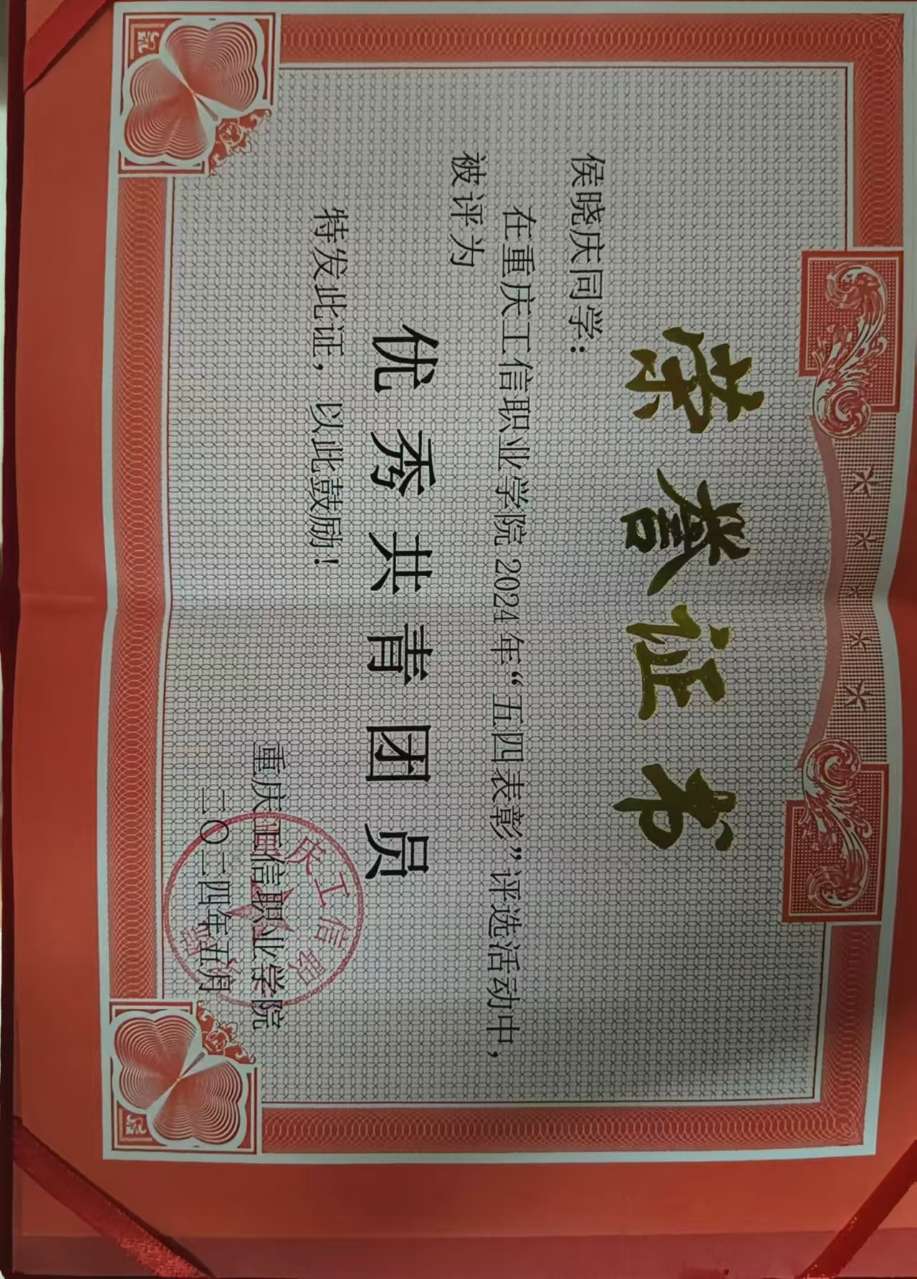 荣誉证书
侯晓庆同学：
在重庆工信职业学院2024年“五四表彰”评选活动中，
被评为
优秀共青团员
特发此证，以此鼓励！
重庆工信职业学院
二〇二四年五月